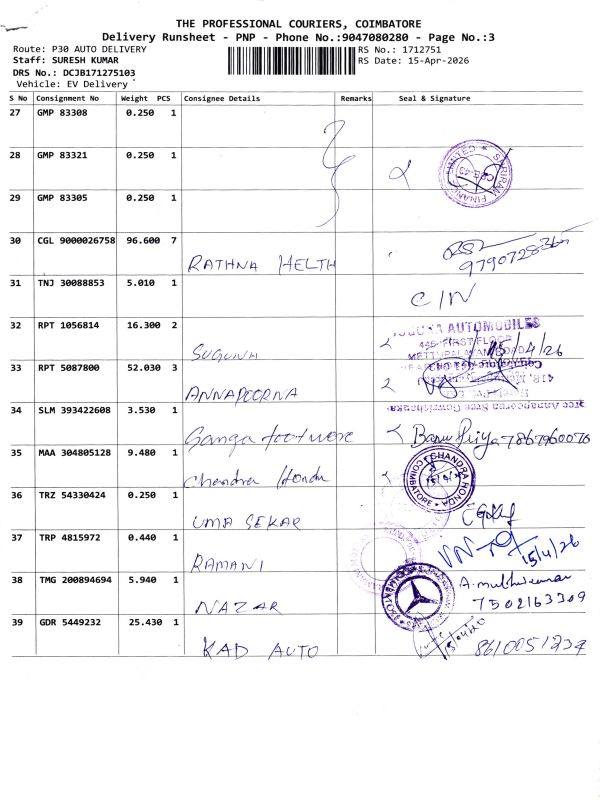 THE PROFESSIONAL COURIERS, COIMBATORE
Delivery Runsheet - PNP - Phone No.:9047080280 - Page No.:3
Route: P30 AUTO DELIVERY RS No.: 1712751
Staff: SURESH KUMAR RS Date: 15-Apr-2026
DRS No.: DCJB171275103
Vehicle: EV Delivery
S No Consignment No Weight PCS Consignee Details Remarks Seal & Signature
27 GMP 83308 0.250 1
28 GMP 83321 0.250 1
29 GMP 83305 0.250 1
30 CGL 9000026758 96.600 7 RATHNA HELTH
31 TNJ 30088853 5.010 1 C/N
32 RPT 1056814 16.300 2 SUGUNA AUTOMOBILES 15/4/26
33 RPT 5087800 52.030 3 ANNAPOORNA
34 SLM 393422608 3.530 1 Ganga footwore Banu Priya 7867960076
35 MAA 304805128 9.480 1 Chandra Honda CHANDRA HONDA COIMBATORE
36 TRZ 54330424 0.250 1 UMA SEKAR
37 TRP 4815972 0.440 1 RAMANI 15/4/26
38 TMG 200894694 5.940 1 NAZAR A. muthukumar 7502163309
39 GDR 5449232 25.430 1 KAD AUTO